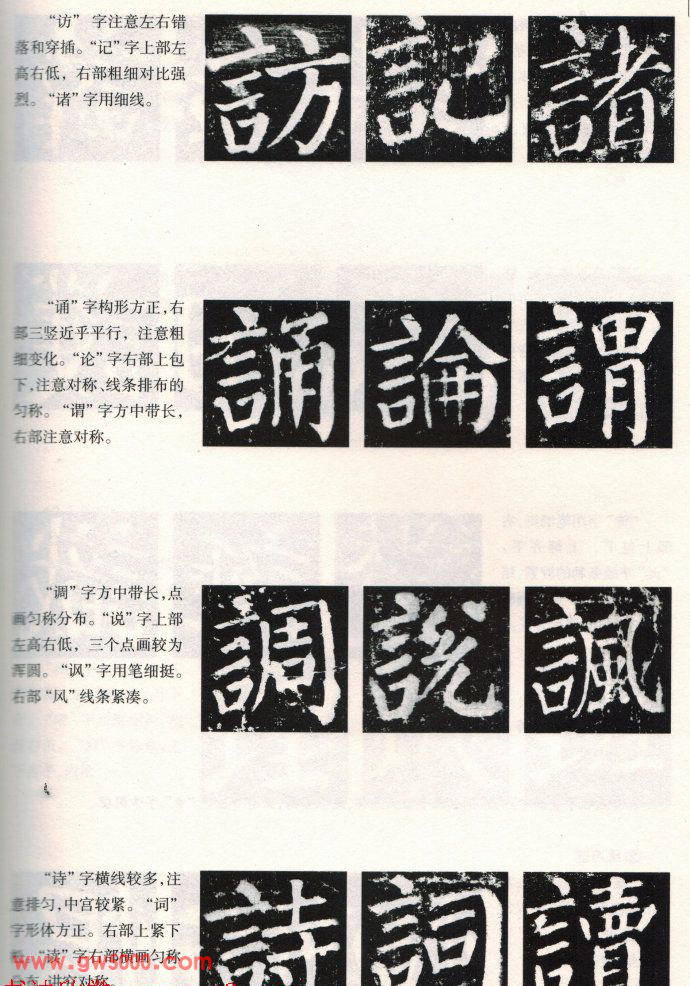 “访” 字注意左右错
落和穿插。“记”字上部左
高右低，右部粗细对比强
烈。“诸”字用细线。
訪 記 諸
“诵”字构形方正，右
部三竖近乎平行，注意粗
细变化。“论”字右部上包
下，注意对称、线条排布的
匀称。“谓”字方中带长，
右部注意对称。
誦 論 謂
“调”字方中带长，点
画匀称分布。“说”字上部
左高右低，三个点画较为
浑圆。“讽”字用笔细挺。
右部“风”线条紧凑。
調 說 諷
“诗”字横线较多，注
意排匀，中宫较紧。“词”
字形体方正。右部上紧下
“读”字右部横画匀称
讲究对称
詩 詞 讀
www.gw5000.com